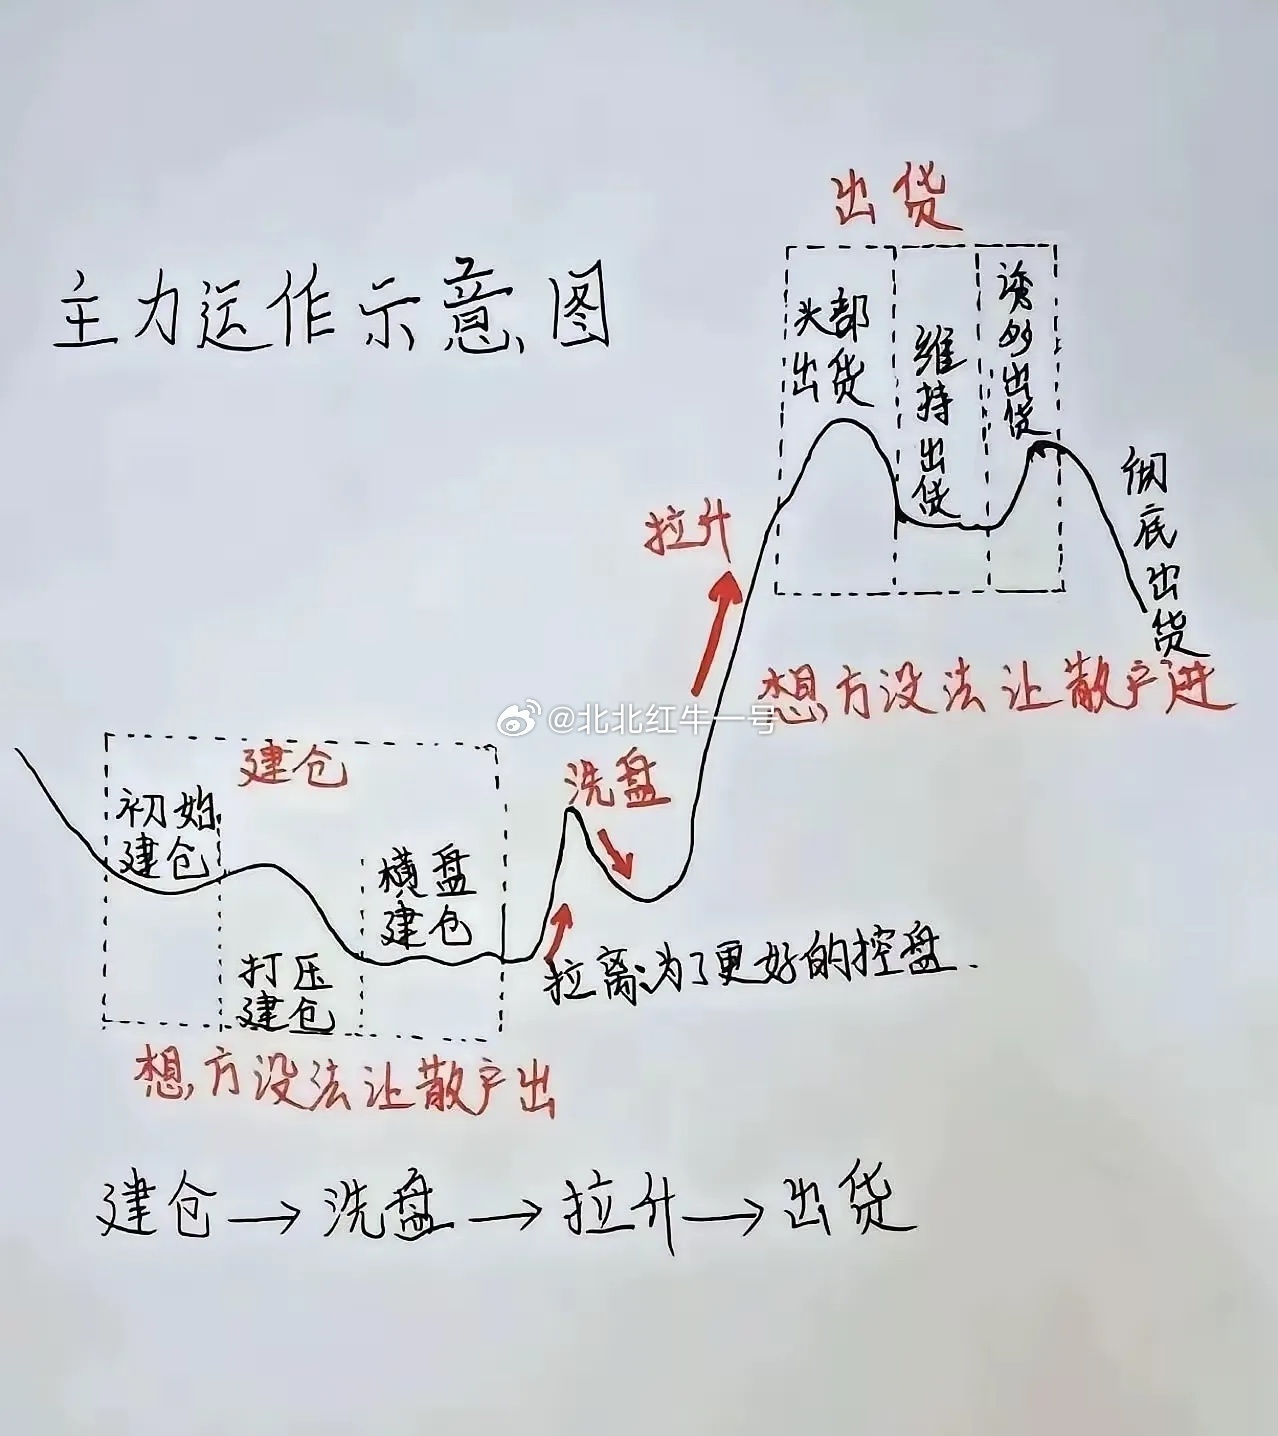 出货
主力运作示意图
头部
出货
维持出货
诱多出货
彻底出货
拉升
想方没法让散户进
@北北红牛一号
建仓
洗盘
初始
建仓
横盘
建仓
打压
建仓
拉离:为了更好的控盘.
想方没法让散户出
建仓→洗盘→拉升→出货